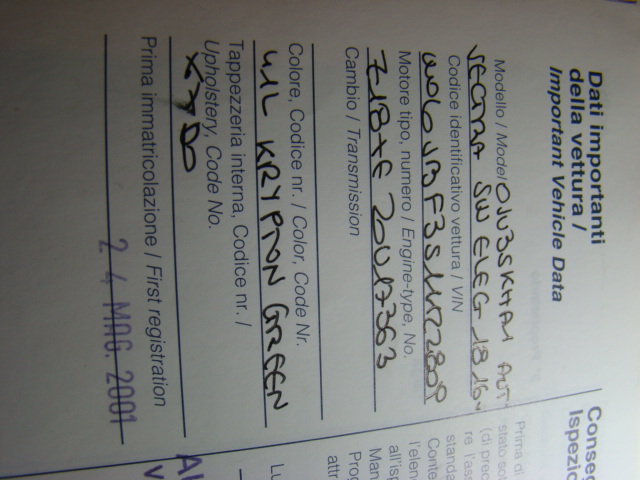 Dati importanti
della vettura /
Important Vehicle Data
Modello / Model OJU35KHAM AUT
VECTRA SW ELEG 18 16V
Codice identificativo vettura / VIN
Motore tipo, numero / Engine-type, No.
Z18XE 20U17363
Cambio / Transmission
Colore, Codice nr. / Color, Code Nr.
41L KRYPTON GREEN
Tappezzeria interna, Codice nr. /
Upholstery, Code No.
Prima immatricolazione / First registration
24 MAG. 2001
Prima di
stato so
(di prec
re l'as
standa
Conte
l'elen
all'isp
Man
Prog
attr
Lu